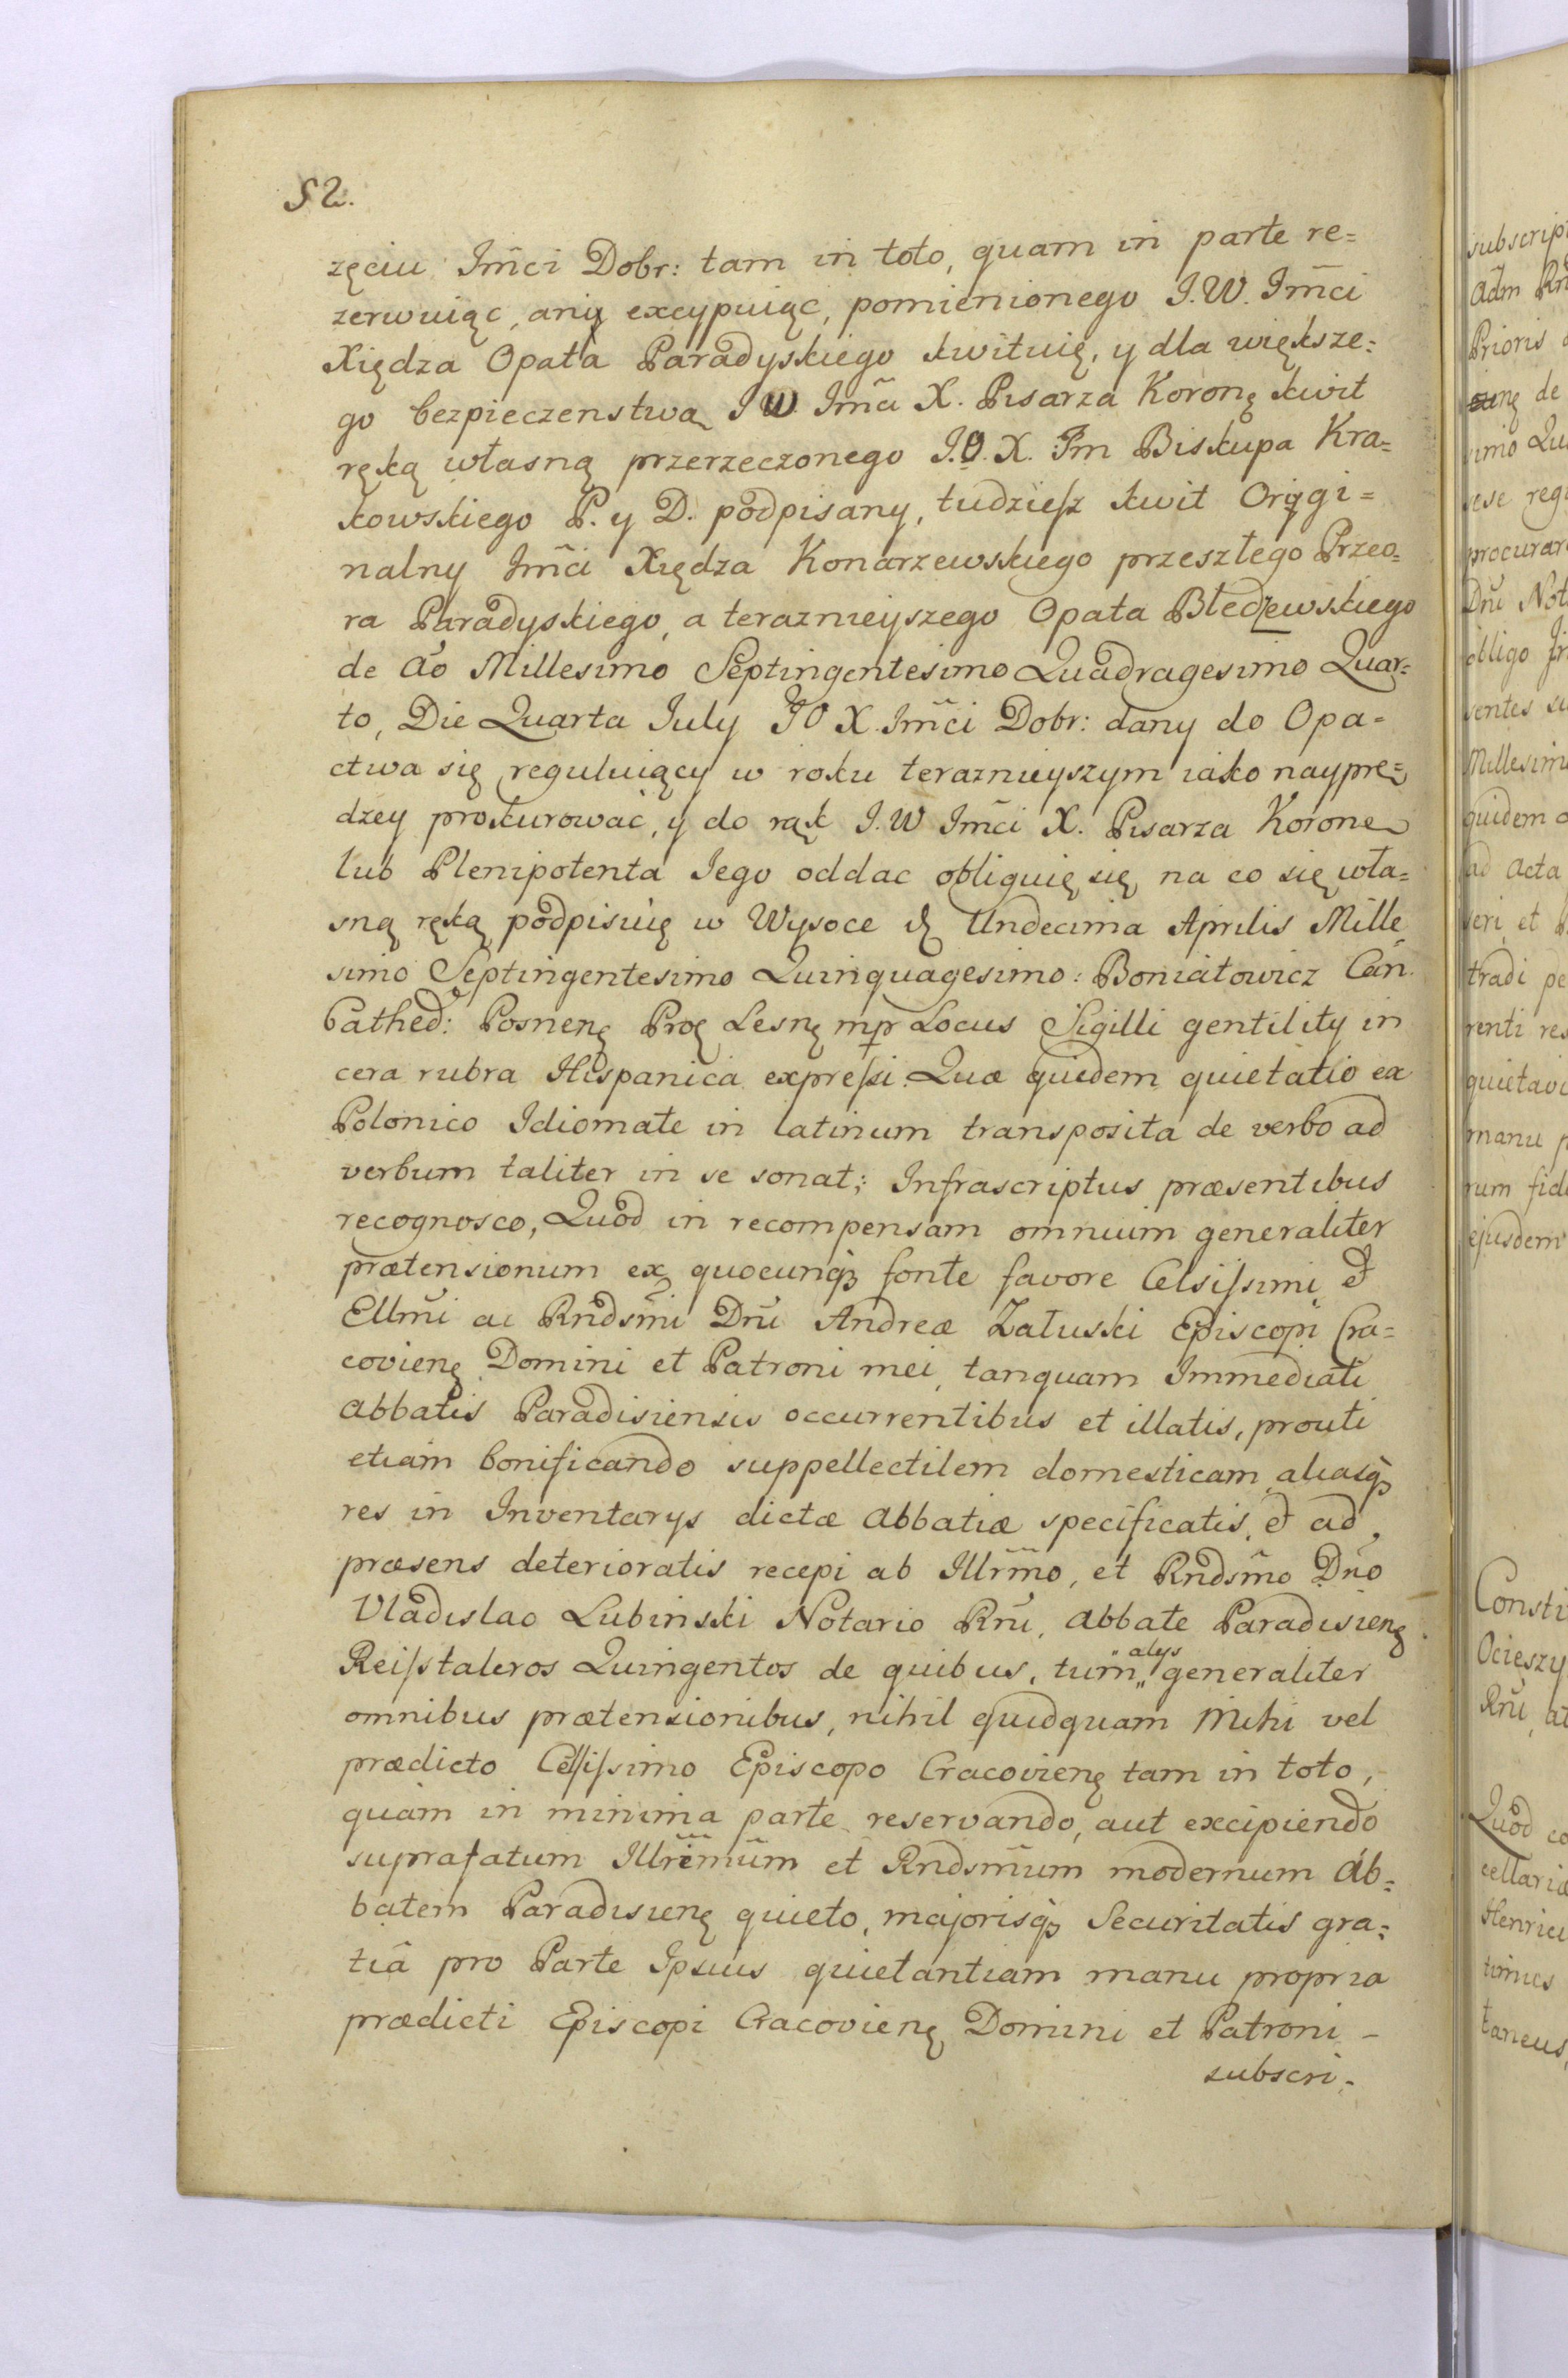 52.
zęciu Imci Dobr: tam in toto, quam in parte re=
zerwuiąc, anij excypuiąc, pomienionego I.W. Imci
Xiędza Opata Paradyskiego kwituię, y dla większe=
go bezpieczenstwa I W Imci X. Pisarza Koronę kwit
ręką własną przerzeczonego J.O.X. Im Biskupa Kra=
kowskiego P. y D. podpisany, tudziesz kwit Orygi=
nalny Imci Xiędza Konarzewskiego przeszłego Przeo=
ra Paradyskiego, a teraznieyszego Opata Bledzewskiego
de Ao Millesimo Septingentesimo Quadragesimo Quar=
to, Die Quarta July JO X Imci Dobr: dany do Opa=
ctwa się reguluiący w roku teraznieyszym iako nayprę=
dzey prokurować, y do rąk I.W Imci X. Pisarza Korone
lub Plenipotenta Iego oddac obliguię się na co się wła=
sną ręką podpisuię w Wysoce d Undecima Aprilis Mille
simo Septingentesimo Quinquagesimo: Boniatowicz Can.
Cathed: Posnenę Proę Lesnę mpr Locus Sigilli gentility in
cera rubra Hispanica expressi. Quæ quidem quietatio ex
Polonico Idiomate in latinum transposita de verbo ad
verbum taliter in se sonat: Infrascriptus præsentibus
recognosco, Quod in recompensam omnium generaliter
prætensionum ex quocunqz fonte favore Celsissimi et
Ellmi ac Rndsmi Dni Andreæ Załuski Episcopi Cra=
covienę Domini et Patroni mei, tanquam Immediati
Abbatis Paradisiensis occurrentibus et illatis, prouti
etiam bonificando suppellectilem domesticam aliasqz
res in Inventarys dictæ Abbatiæ specificatis, et ad
præsens deterioratis recepi ab Illrmo, et Rndsmo Dno
Vladislao Lubinski Notario Rni, Abbate Paradisienę
Reisstaleros Quingentos de quibus, tum " alys generaliter
omnibus prætensionibus, nihil quidquam Mihi vel
prædicto Celsissimo Episcopo Cracovienę tam in toto,
quam in minima parte reservando, aut excipiendo
suprafatum Illremum et Rndsmum modernum Ab=
batem Paradisienę quieto, majorisqz Securitatis gra=
tiâ pro Parte Ipsius quietantiam manu propria
prædicti Episcopi Cracovienę Domini et Patroni -
subscri=